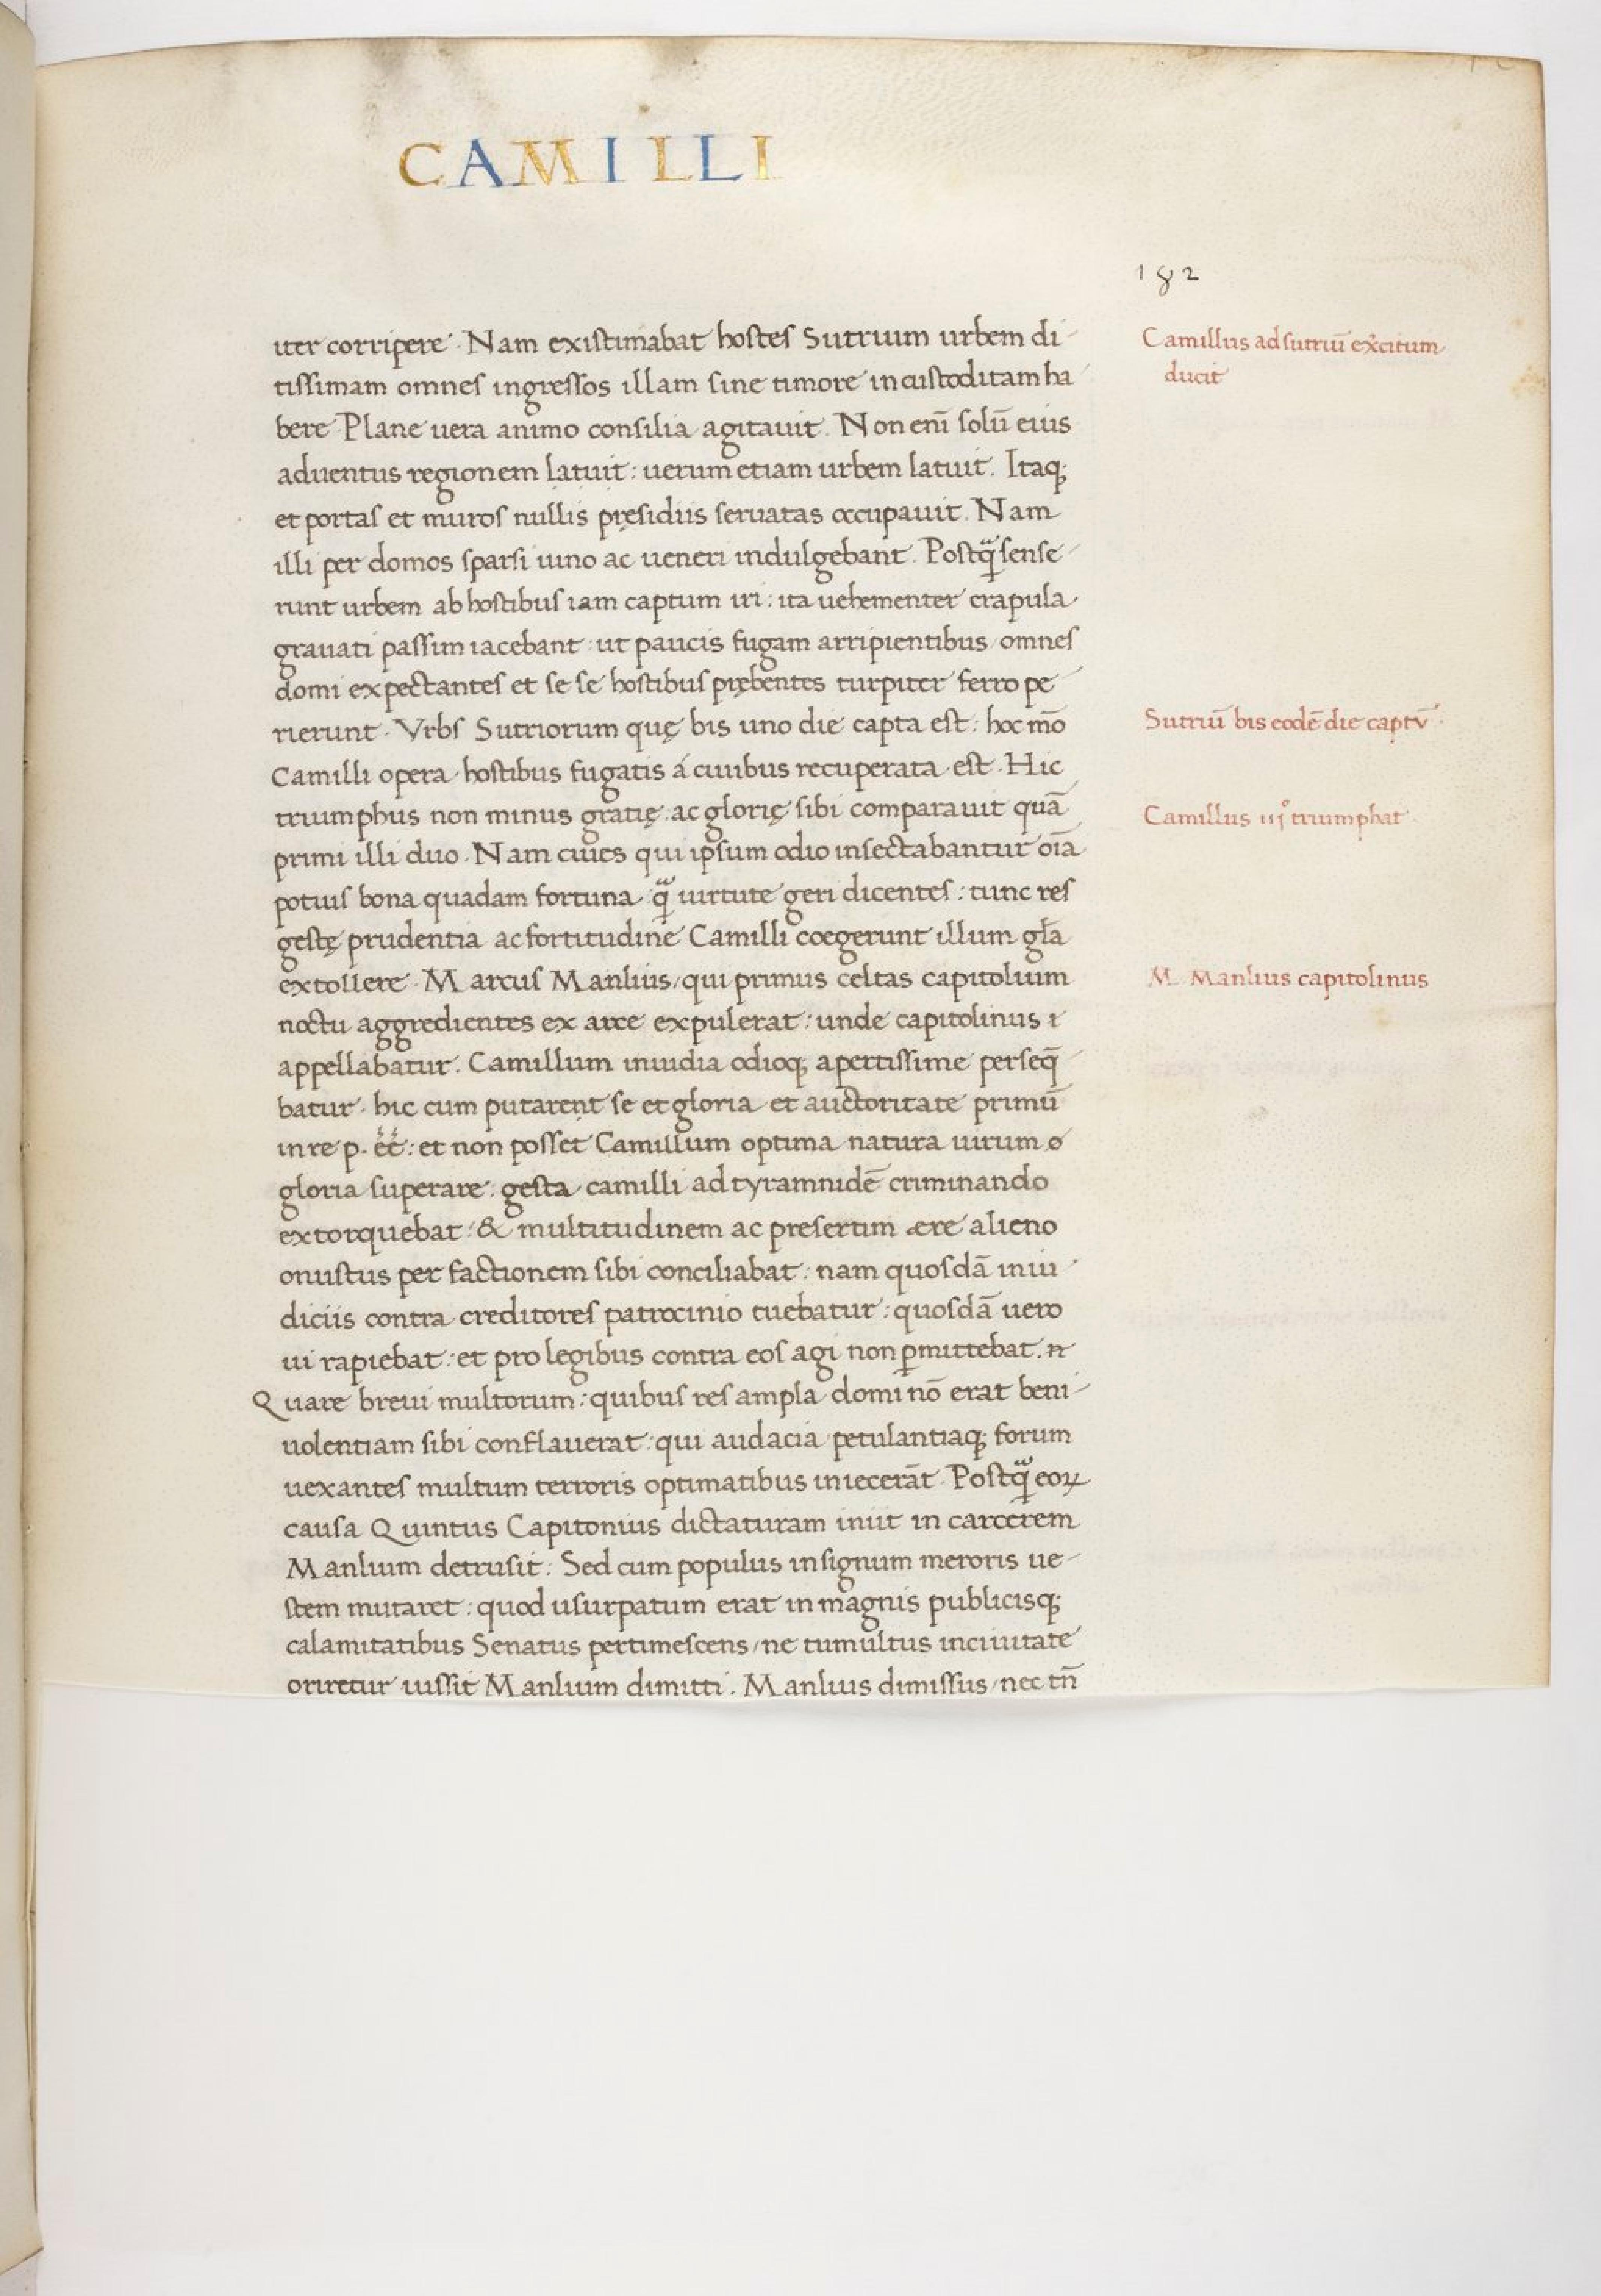 CAMILLI
182
iter corripere. Nam existimabat hostes Sutrium urbem di-
tissimam omnes ingressos illam sine timore incustoditam ha-
bere. Plane uera animo consilia agitauit. Non eni̅ solu̅ eius
aduentus regionem latuit: uerum etiam urbem latuit. Itaq;
et portas et muros nullis pręsidiis seruatas occupauit. Nam
illi per domos sparsi uino ac ueneri indulgebant. Postq̃ sense-
runt urbem ab hostibus iam captum iri: ita uehementer crapula
grauati passim iacebant: ut paucis fugam arripientibus / omnes
domi expectantes et se se hostibus prębentes turpiter ferro pe-
rierunt. Vrbs Sutriorum quę bis uno die capta est: hoc mo̅
Camilli opera hostibus fugatis á ciuibus recuperata est. Hic
triumphus non minus gratię ac glorię sibi comparauit qua̅
primi illi duo. Nam ciues qui ipsum odio insectabantur oi̅a
potius bona quadam fortuna q̃ uirtute geri dicentes: tunc res
gestę prudentia ac fortitudine Camilli coegerunt illum gl̅a
extollere. Marcus Manlius / qui primus celtas capitolium
noctu aggredientes ex arce expulerat: unde capitolinus
appellabatur. Camillum inuidia odioq; apertissime perseq̅-
batur. hic cum putarent se et gloria et auctoritate primu̅
in re p. ee̅: et non posset Camillum optima natura uirum
gloria superare: gesta camilli ad tyramnide̅ criminando
extorquebat: & multitudinem ac presertim ære alieno
onustus per factionem sibi conciliabat: nam quosda̅ in iu-
diciis contra creditores patrocinio tuebatur: quosda̅ uero
ui rapiebat: et pro legibus contra eos agi non p̱mittebat.
Quare breui multorum: quibus res ampla domi no̅ erat beni-
uolentiam sibi conflauerat: qui audacia petulantiaq; forum
uexantes multum terroris optimatibus iniecera̅t. Postq̃ eoꝝ
causa Quintus Capitonius dictaturam iniit in carcerem
Manlium detrusit: Sed cum populus in signum meroris ue-
stem mutaret: quod usurpatum erat in magnis publicisq;
calamitatibus Senatus pertimescens / ne tumultus in ciuitate
oriretur iussit Manlium dimitti. Manlius dimissus / nec tn̅
Camillus ad sutriu̅ ex̓citum
ducit
Sutriu̅ bis eode̅ die captv̅.
Camillus iijº triumphat.
M. Manlius capitolinus